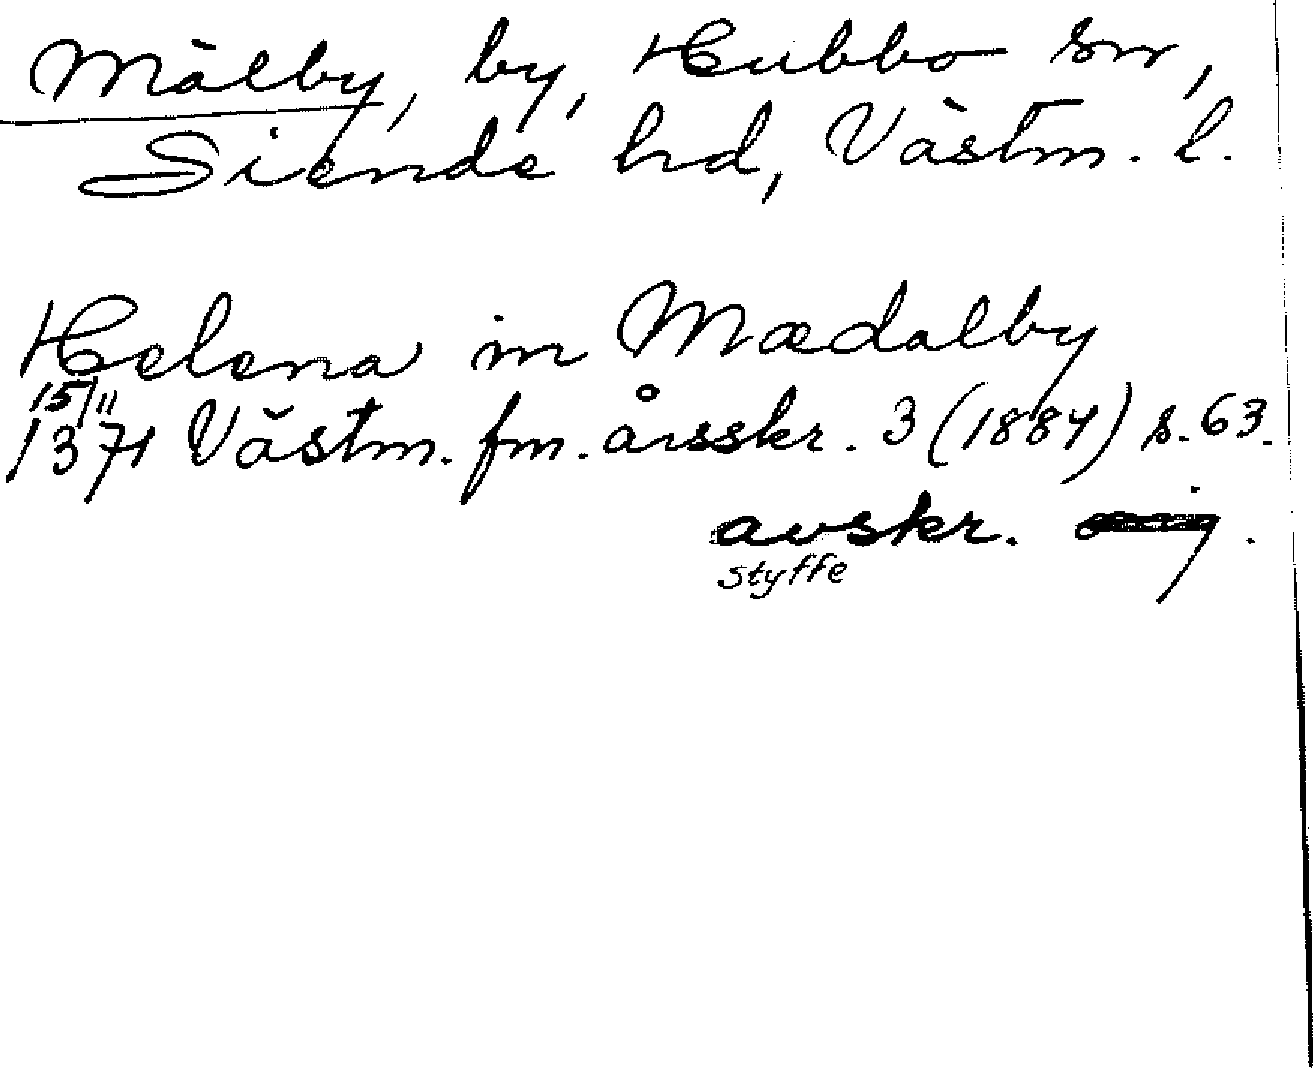 Mälby, by, Hubbo sn,
Siende hd, Västm. l.
Helena in Mædalby
15/11
1371 Västm. fm. årsskr. 3 (1884) s. 63.
avskr.
Styffe